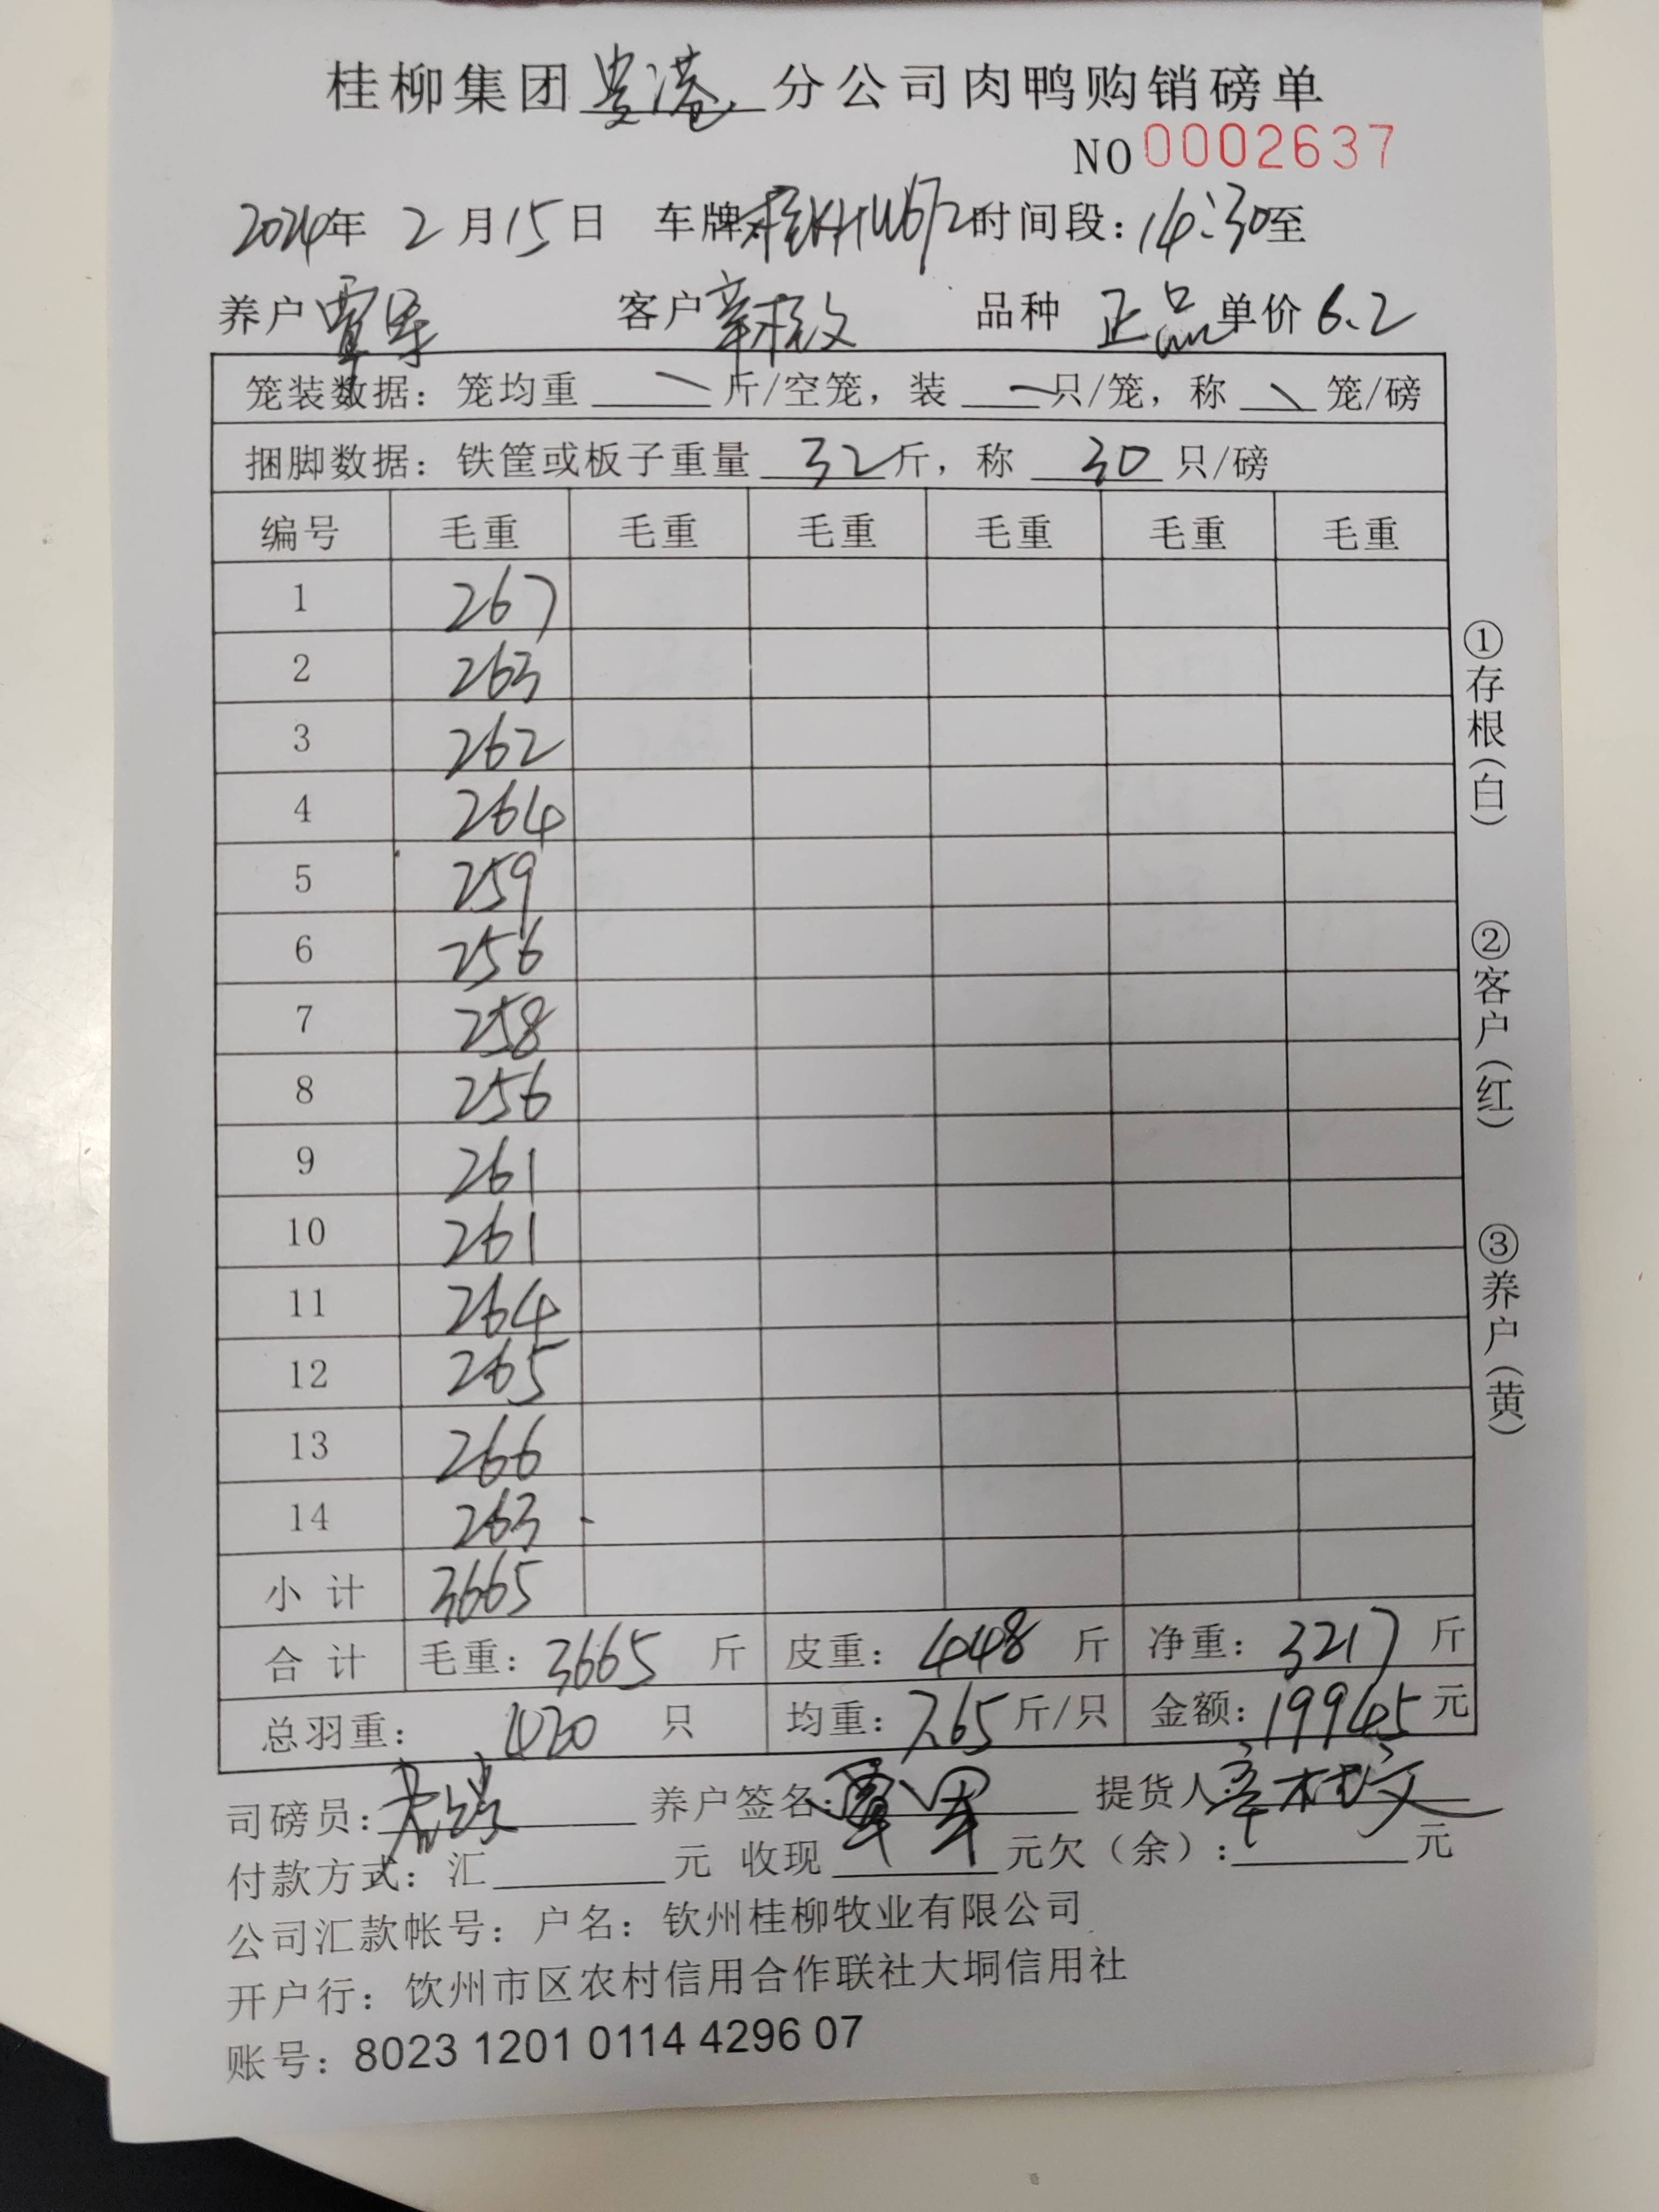 桂柳集团贵港分公司肉鸭购销磅单
NO 0002637
2024年 2月15日 车牌桂KHW672时间段:14:30至
养户覃军 客户辛桂文 品种 正品 单价6.2
笼装数据:笼均重 \ 斤/空笼,装 \ 只/笼,称 \ 笼/磅
捆脚数据:铁筐或板子重量 32斤,称 30 只/磅
编号 毛重 毛重 毛重 毛重 毛重 毛重
1 267
2 263
3 262
4 264
5 259
6 256
7 258
8 256
9 261
10 261
11 264
12 265
13 266
14 263
小计 3665
合计 毛重:3665 斤 皮重:448 斤 净重:3217 斤
总羽重: 420 只 均重:7.65斤/只 金额:19945元
司磅员: 养户签名:覃军 提货人:辛桂文
付款方式:汇 元 收现 元欠(余): 元
公司汇款帐号:户名:钦州桂柳牧业有限公司
开户行:钦州市区农村信用合作联社大垌信用社
账号:8023 1201 0114 4296 07
①存根(白)
②客户(红)
③养户(黄)